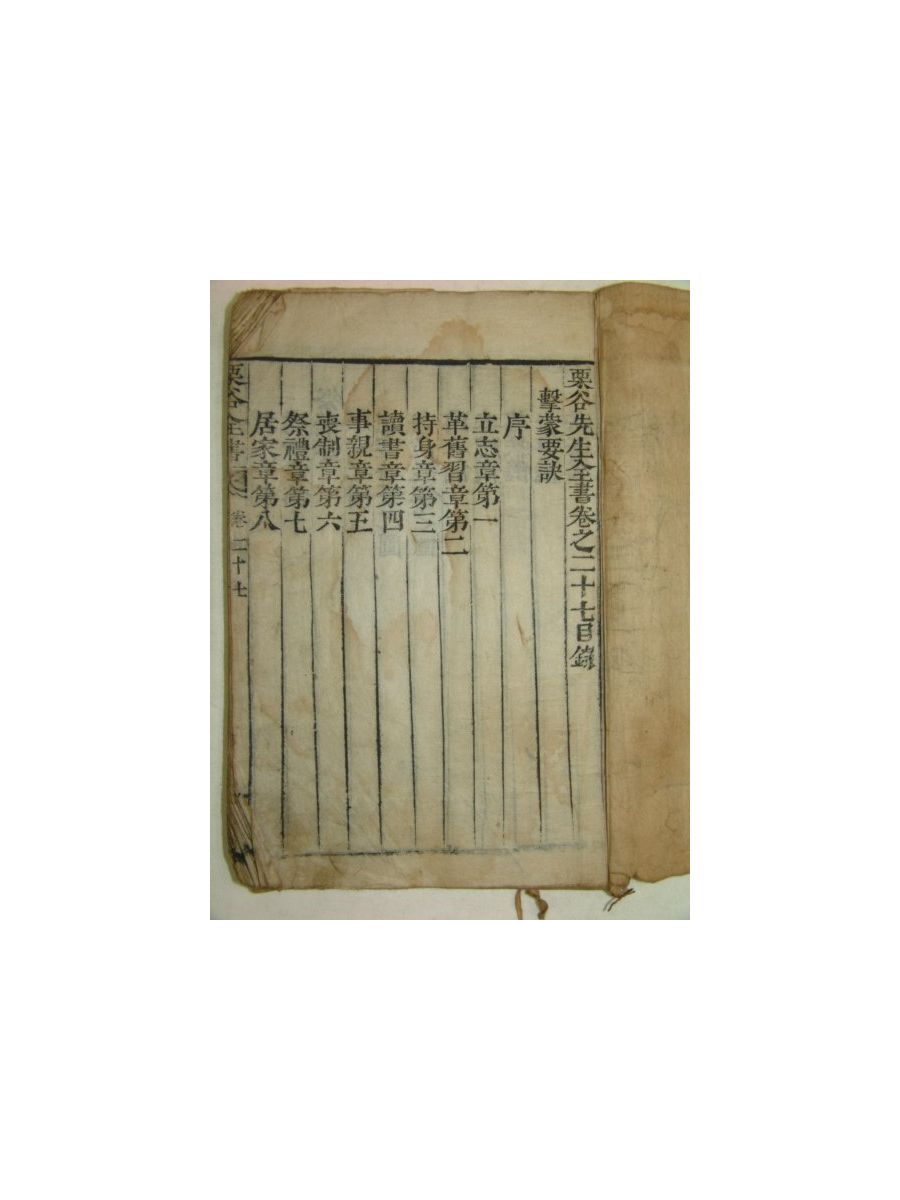 栗谷先生全書卷之二十七目錄
擊蒙要訣
序
立志章第一
革舊習章第二
持身章第三
讀書章第四
事親章第五
喪制章第六
祭禮章第七
居家章第八
栗谷全書 卷二十七